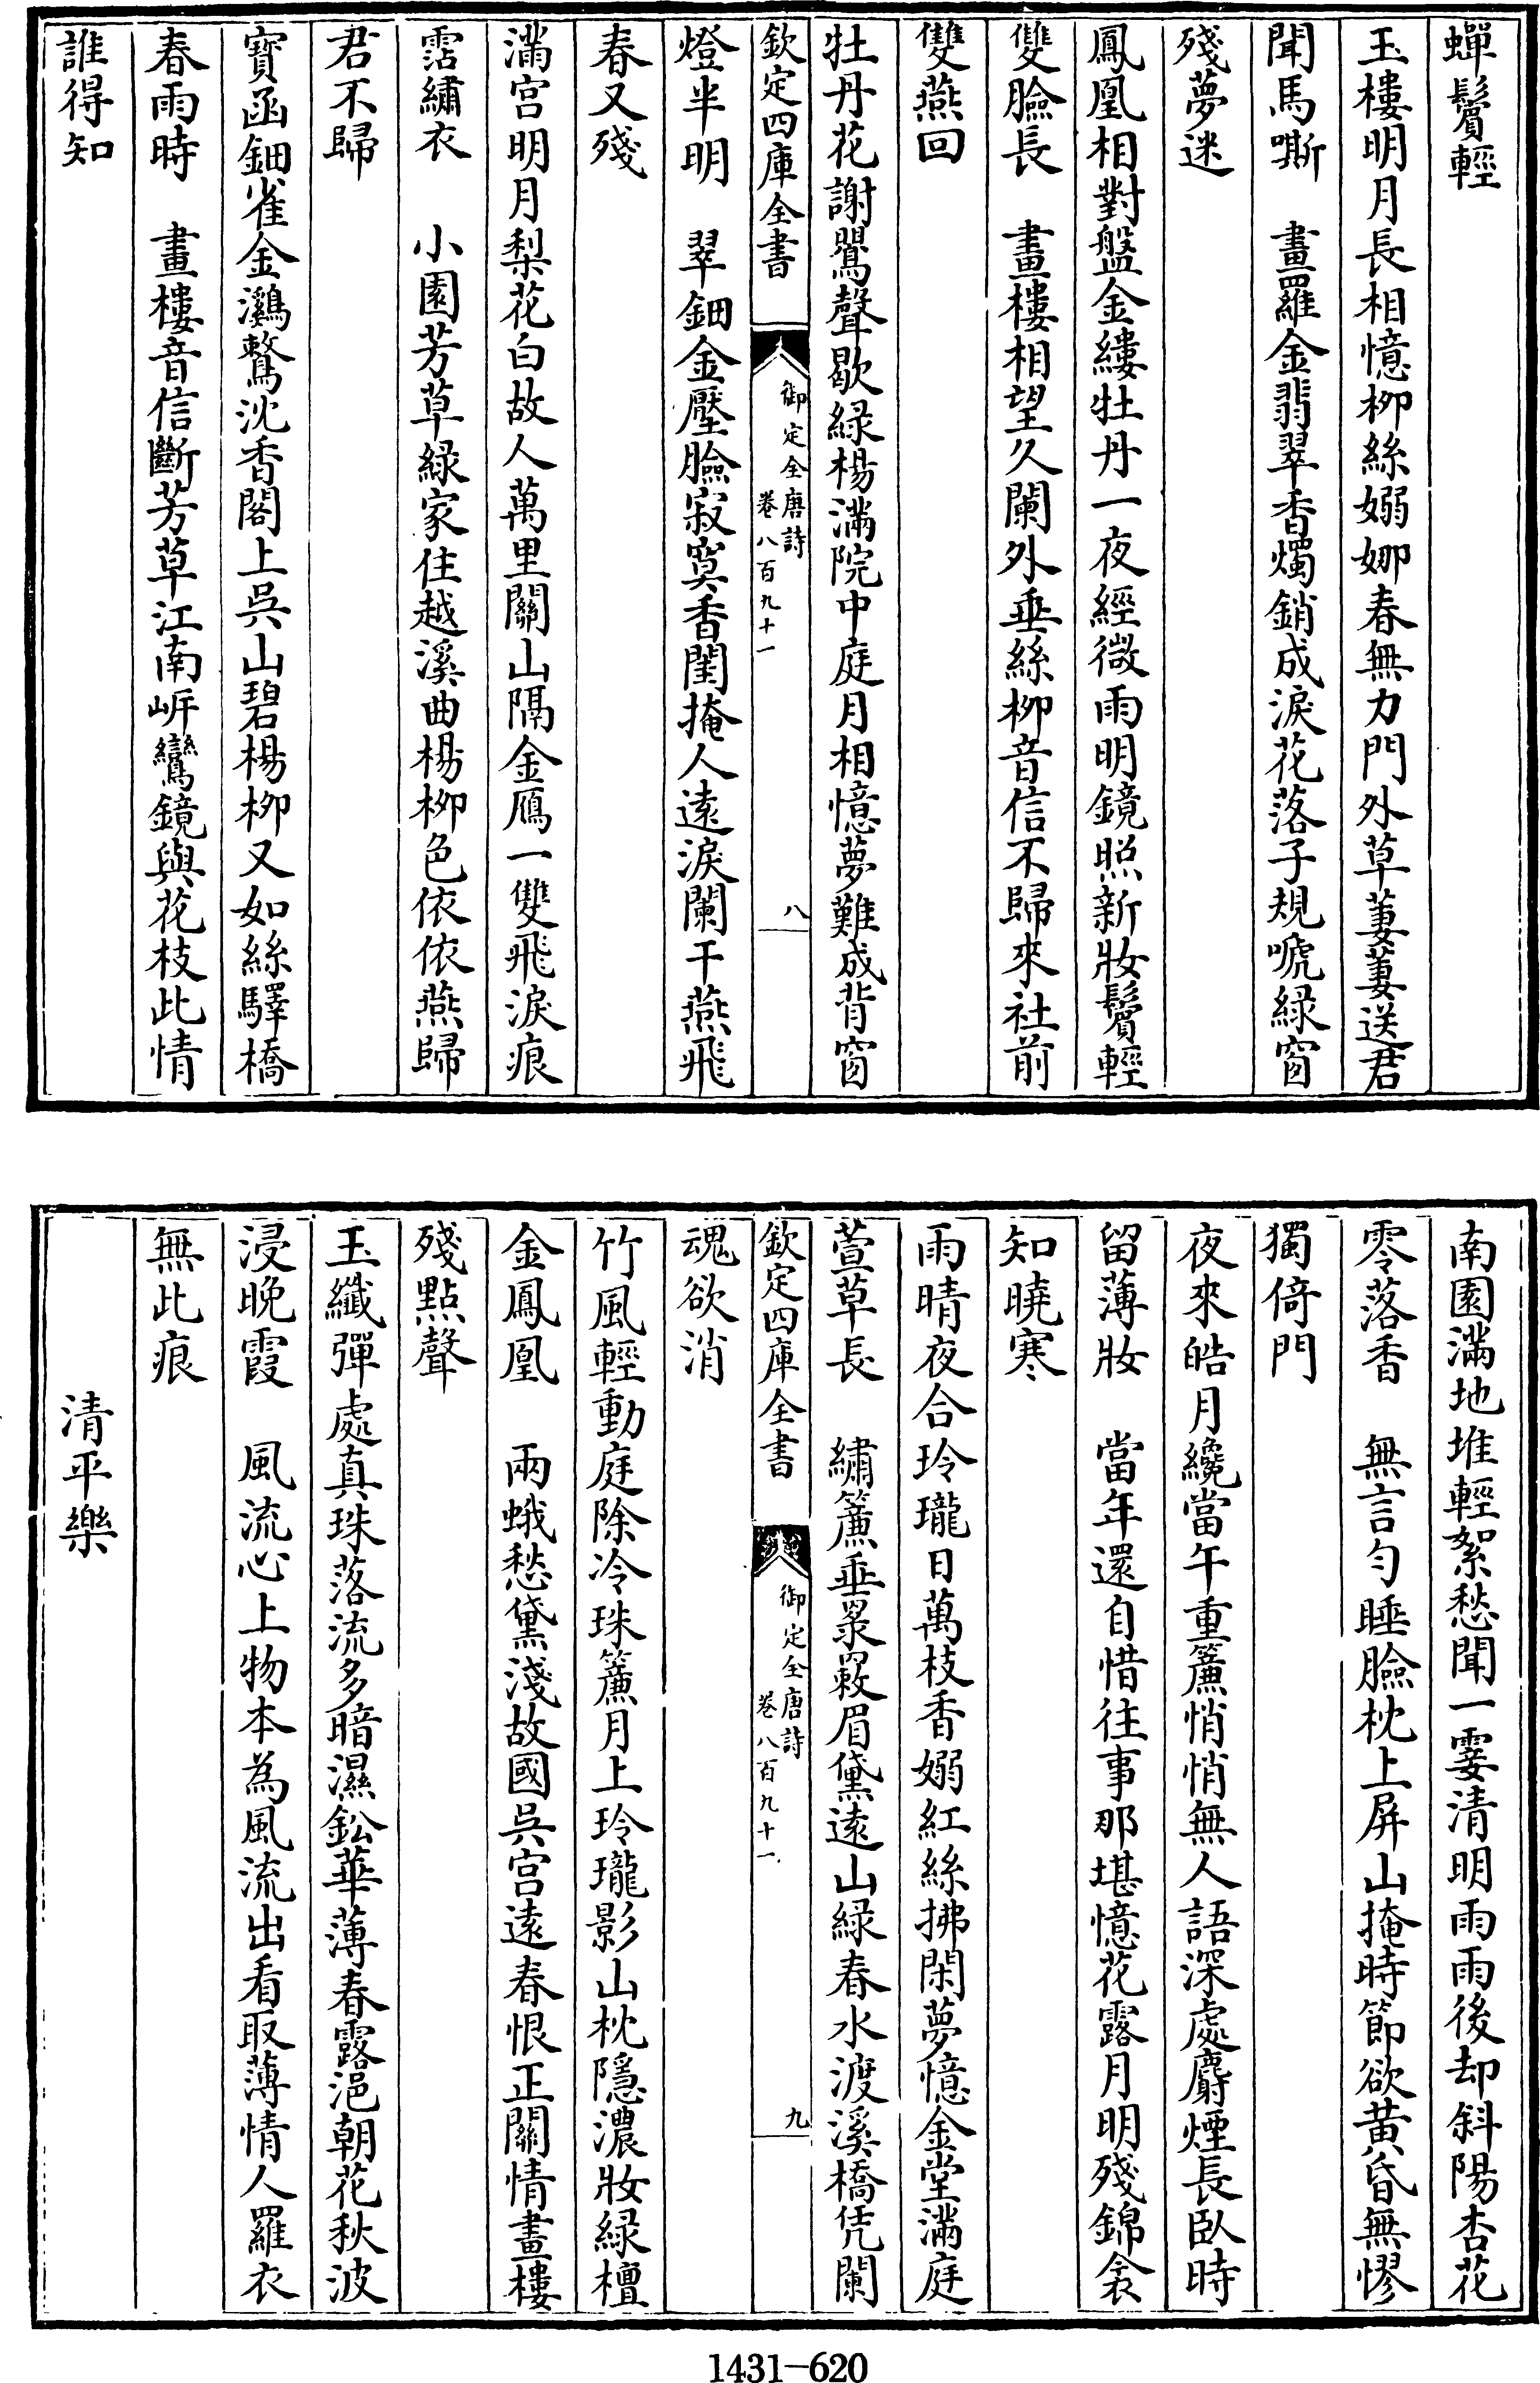 蟬鬢輕
玉樓明月長相憶柳絲嫋娜春無力門外草萋萋送君
聞馬嘶　畫羅金翡翠香燭銷成淚花落子規啼綠窗
殘夢迷
鳳凰相對盤金縷牡丹一夜經微雨明鏡照新妝鬢輕
雙臉長　畫樓相望久闌外垂絲柳音信不歸來社前
雙燕回
牡丹花謝鶯聲歇綠楊滿院中庭月相憶夢難成背窗
欽定四庫全書
御定全唐詩
卷八百九十一
八
燈半明　翠鈿金壓臉寂寞香閨掩人遠淚闌干燕飛
春又殘
滿宮明月梨花白故人萬里關山隔金鴈一雙飛淚痕
霑繡衣　小園芳草綠家住越溪曲楊柳色依依燕歸
君不歸
寶函鈿雀金鸂鶒沈香閣上吳山碧楊柳又如絲驛橋
春雨時　畫樓音信斷芳草江南岸鸞鏡與花枝此情
誰得知
南園滿地堆輕絮愁聞一霎清明雨雨後却斜陽杏花
零落香　無言勻睡臉枕上屏山掩時節欲黃昏無憀
獨倚門
夜來皓月纔當午重簾悄悄無人語深處麝煙長臥時
留薄妝　當年還自惜往事那堪憶花露月明殘錦衾
知曉寒
雨晴夜合玲瓏日萬枝香嫋紅絲拂閑夢憶金堂滿庭
萱草長　繡簾垂箓簌眉黛遠山綠春水渡溪橋凭闌
欽定四庫全書
御定全唐詩
卷八百九十一
九
魂欲消
竹風輕動庭除冷珠簾月上玲瓏影山枕隱濃妝綠檀
金鳳凰　兩蛾愁黛淺故國吳宮遠春恨正關情畫樓
殘點聲
玉纖彈處真珠落流多暗濕鈆華薄春露浥朝花秋波
浸晚霞　風流心上物本為風流出看取薄情人羅衣
無此痕
清平樂
1431-620